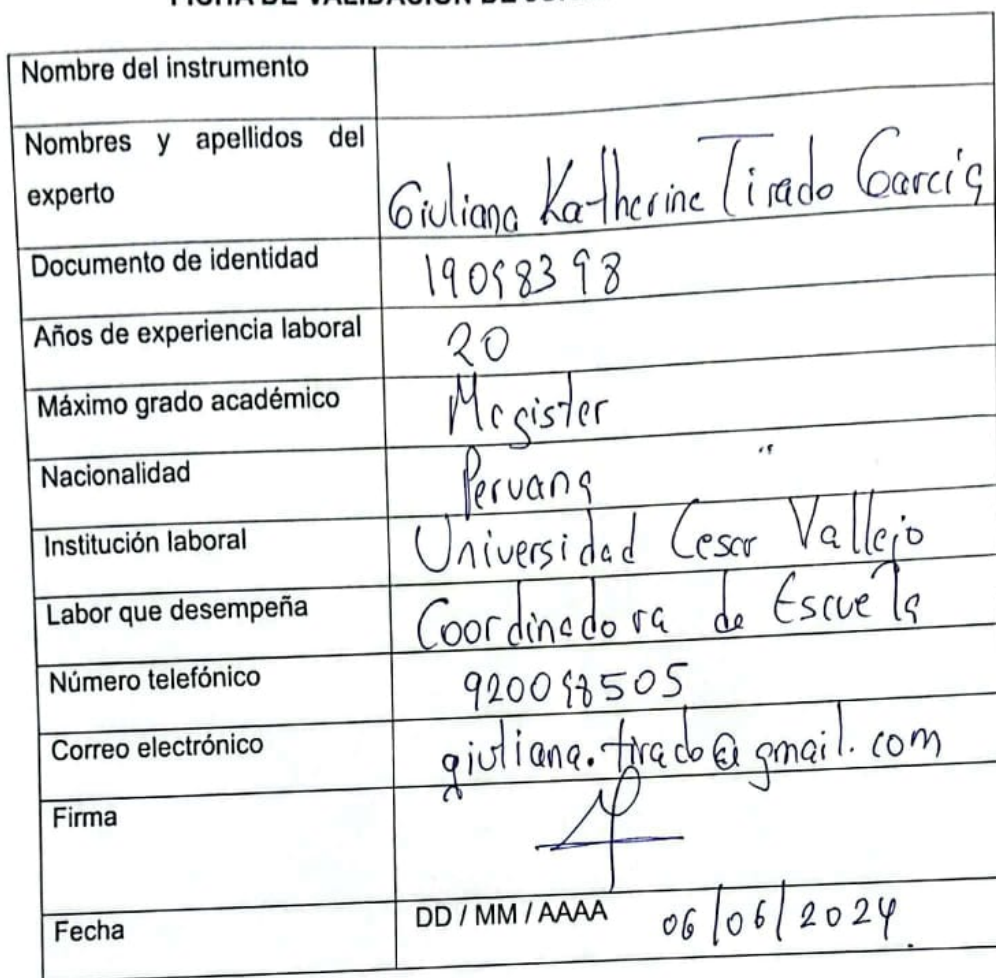 FICHA DE VALIDACIÓN DE
Nombre del instrumento
Nombres y apellidos del
experto
Giuliana Katherine Tirado García
Documento de identidad
19098398
Años de experiencia laboral
20
Máximo grado académico
Magister
Nacionalidad
Peruana
Institución laboral
Universidad Cesar Vallejo
Labor que desempeña
Coordinadora de Escuela
Número telefónico
920098505
Correo electrónico
giuliana.tirado@gmail.com
Firma
Fecha
DD / MM / AAAA 06/06/2024